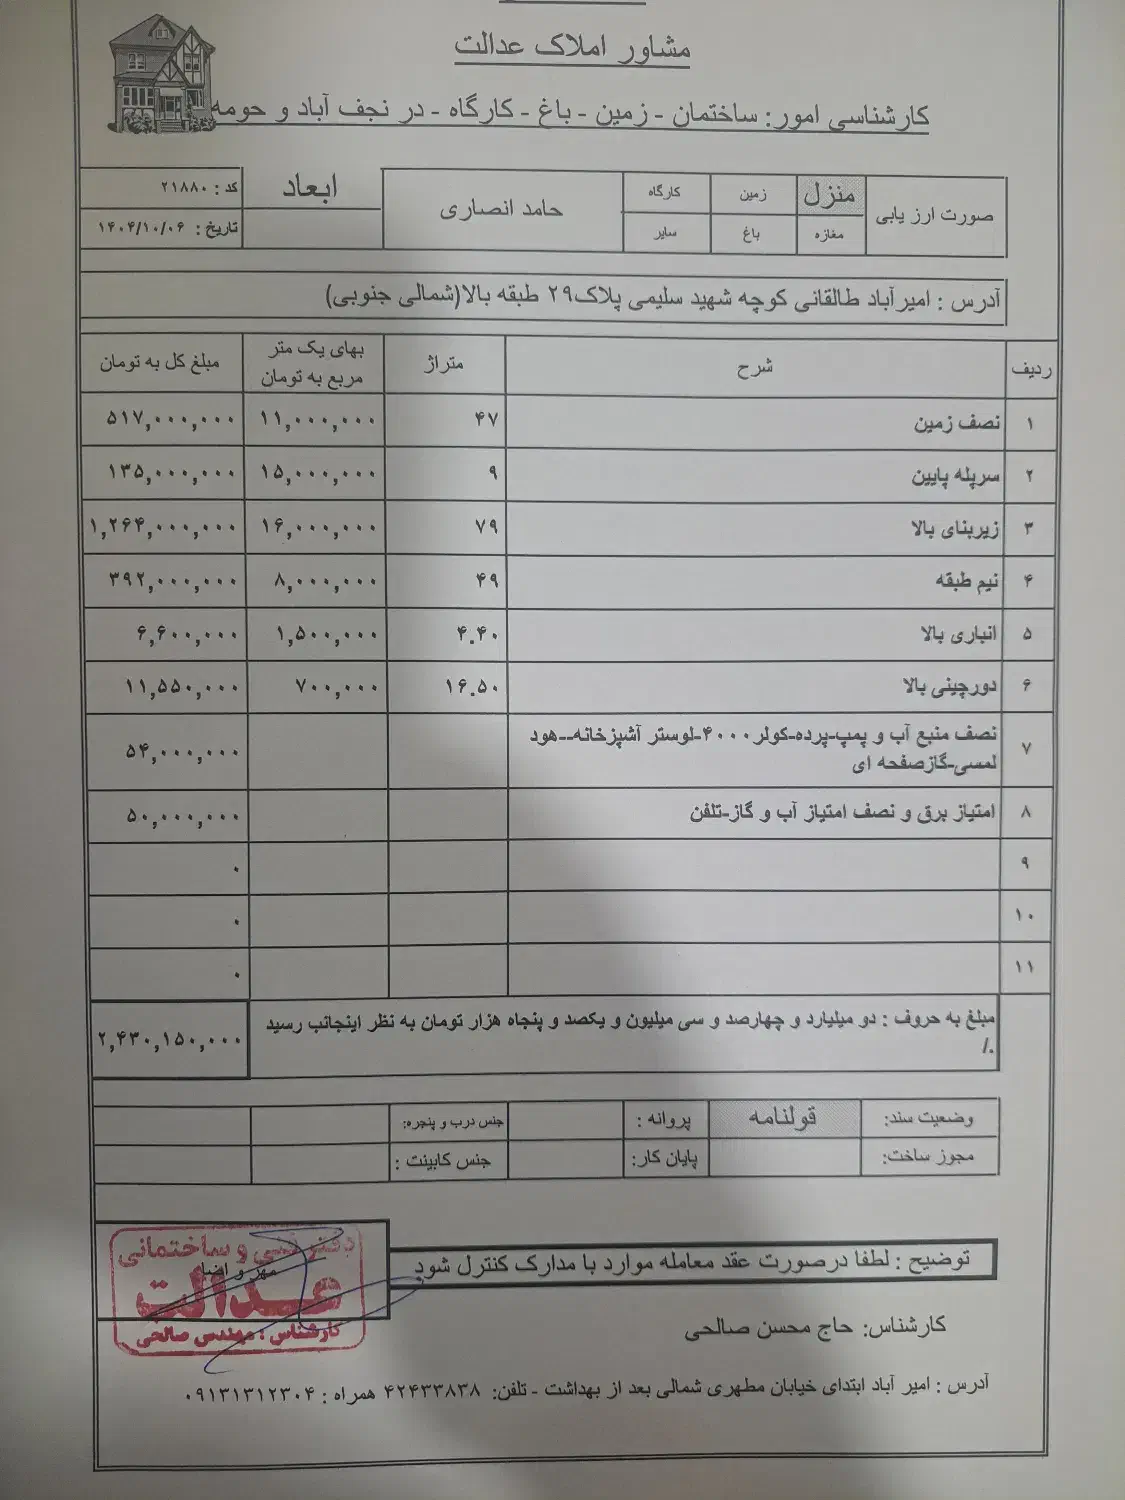 مشاور املاک عدالت
کارشناسی امور: ساختمان - زمین - باغ - کارگاه - در نجف آباد و حومه
صورت ارز یابی منزل زمین کارگاه حامد انصاری ابعاد کد : ۲۱۸۸۰
مغازه باغ سایر تاریخ : ۱۴۰۴/۱۰/۰۶
آدرس : امیرآباد طالقانی کوچه شهید سلیمی پلاک۲۹ طبقه بالا(شمالی جنوبی)
ردیف شرح متراژ بهای یک متر مربع به تومان مبلغ کل به تومان
۱ نصف زمین ۴۷ ۱۱,۰۰۰,۰۰۰ ۵۱۷,۰۰۰,۰۰۰
۲ سرپله پایین ۹ ۱۵,۰۰۰,۰۰۰ ۱۳۵,۰۰۰,۰۰۰
۳ زیربنای بالا ۷۹ ۱۶,۰۰۰,۰۰۰ ۱,۲۶۴,۰۰۰,۰۰۰
۴ نیم طبقه ۴۹ ۸,۰۰۰,۰۰۰ ۳۹۲,۰۰۰,۰۰۰
۵ انباری بالا ۴.۴۰ ۱,۵۰۰,۰۰۰ ۶,۶۰۰,۰۰۰
۶ دورچینی بالا ۱۶.۵۰ ۷۰۰,۰۰۰ ۱۱,۵۵۰,۰۰۰
۷ نصف منبع آب و پمپ-پرده-کولر۴۰۰۰-لوستر آشپزخانه--هود
لمسی-گازصفحه ای ۵۴,۰۰۰,۰۰۰
۸ امتیاز برق و نصف امتیاز آب و گاز-تلفن ۵۰,۰۰۰,۰۰۰
۹ ۰
۱۰ ۰
۱۱ ۰
مبلغ به حروف : دو میلیارد و چهارصد و سی میلیون و یکصد و پنجاه هزار تومان به نظر اینجانب رسید ۲,۴۳۰,۱۵۰,۰۰۰
./
وضعیت سند: قولنامه پروانه : جنس درب و پنجره:
مجوز ساخت: پایان کار: جنس کابینت :
توضیح : لطفا درصورت عقد معامله موارد با مدارک کنترل شود
مهر و امضا
دفتر فنی و ساختمانی
عدالت
کارشناس : مهندس صالحی
کارشناس: حاج محسن صالحی
آدرس : امیر آباد ابتدای خیابان مطهری شمالی بعد از بهداشت - تلفن: ۴۲۴۳۳۸۳۸ همراه : ۰۹۱۳۱۳۱۲۳۰۴